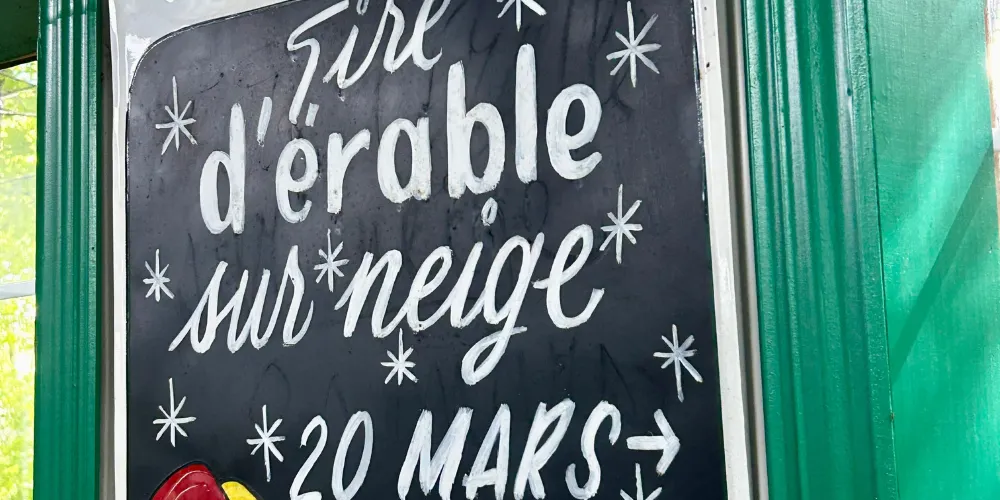 Tire
d'érable
sur neige
20 MARS →